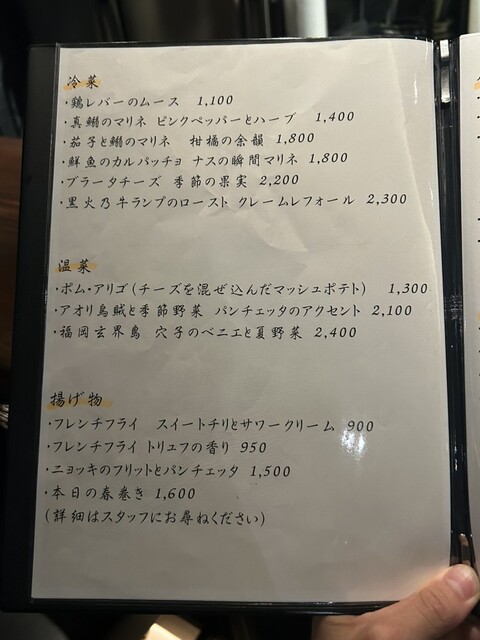 冷菜
・鶏レバーのムース 1,100
・真鯛のマリネ ピンクペッパーとハーブ 1,400
・茄子と鯛のマリネ 柑橘の余韻 1,800
・鮮魚のカルパッチョ ナスの瞬間マリネ 1,800
・ブラータチーズ 季節の果実 2,200
・黒火乃牛ランプのロースト クレームレフォール 2,300
温菜
・ポム・アリゴ(チーズを混ぜ込んだマッシュポテト) 1,300
・アオリ烏賊と季節野菜 パンチェッタのアクセント 2,100
・福岡玄界島 穴子のベニエと夏野菜 2,400
揚げ物
・フレンチフライ スイートチリとサワークリーム 900
・フレンチフライ トリュフの香り 950
・ニョッキのフリットとパンチェッタ 1,500
・本日の春巻き 1,600
(詳細はスタッフにお尋ねください)